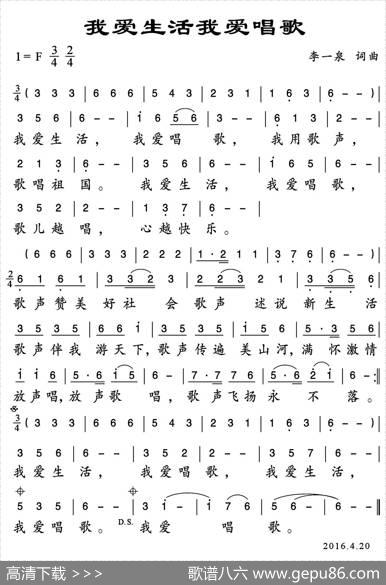 我爱生活我爱唱歌
1=F 3/4 2/4
李一泉 词曲
3/4 (3 3 3 | 6 6 6 | 5 4 3 | 2 - - | 3 2 1 | 1 6 3 | 6 - -) |
3 5 6 | 6 - - | i i6 56 | 6 - - | 2 3 3 | 2 - - |
我爱生活, 我爱唱歌, 我用歌声,
2 1 3 | 6 - - | 3 5 6 | 6 - - | 5 4 3 | 2 - - |
歌唱祖国。 我爱生活, 我爱唱歌,
3 5 2 | 2 - - | 1 3 7 | 6 - - |
歌儿越唱, 心越快乐。
(6 6 6 | 3 3 3 | 2 2 2 | 1·2 1 1 | 3 7 6 | 6 - -) |
歌声赞美 好社 会歌声 述说 新生活
3 5 3 5
歌声伴我 游天下,歌声传遍 美山河,满怀激情
放声唱,放声歌 唱,歌声飞扬永 不 落。
3/4 (3 3 3 | 6 6 6 | 5 4 3 | 2 - - | 3 2 1 | 1 6 3 | 6 - -) |
3 5 6 | 6 - - | 3 5 6 | 6 - - | 3 5 6 | 6 - - |
我爱生活, 我爱唱歌, 我爱生活,
5 3 5 | 6 - - |
我爱唱歌。 D.S. 我爱 唱 歌。
2016.4.20
高清下载 >>>
歌谱八六 www.gepu86.com